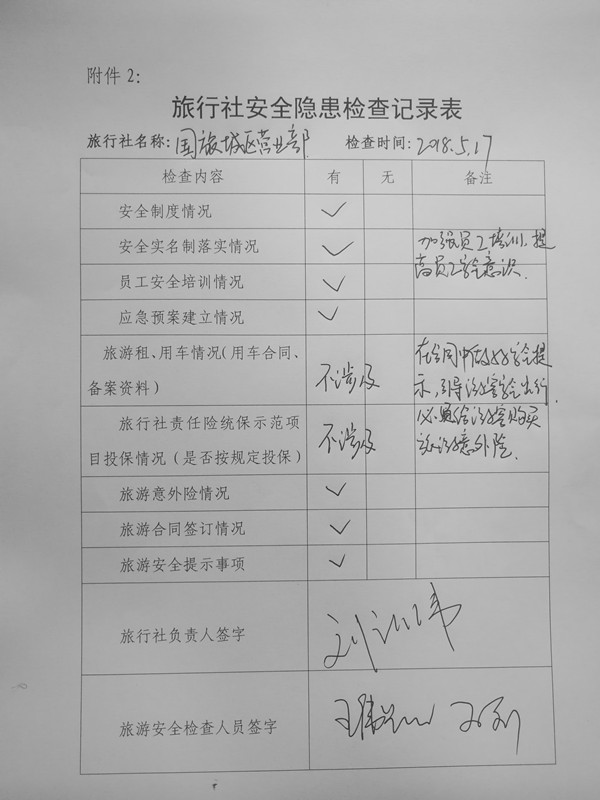 附件 2：
旅行社安全隐患检查记录表
旅行社名称：国旅城区营业部 检查时间：2018.5.17
检查内容 有 无 备注
安全制度情况 ✓
安全实名制落实情况 ✓ 加强员工培训，提
员工安全培训情况 ✓ 高员工安全意识.
应急预案建立情况 ✓
旅游租、用车情况（用车合同、 在合同中做好安全提
备案资料） 不涉及 示，引导游客安全出行，
旅行社责任险统保示范项 给游客购买
目投保情况（是否按规定投保） 不涉及 意外险.
旅游意外险情况 ✓
旅游合同签订情况 ✓
旅游安全提示事项 ✓
旅行社负责人签字
旅游安全检查人员签字